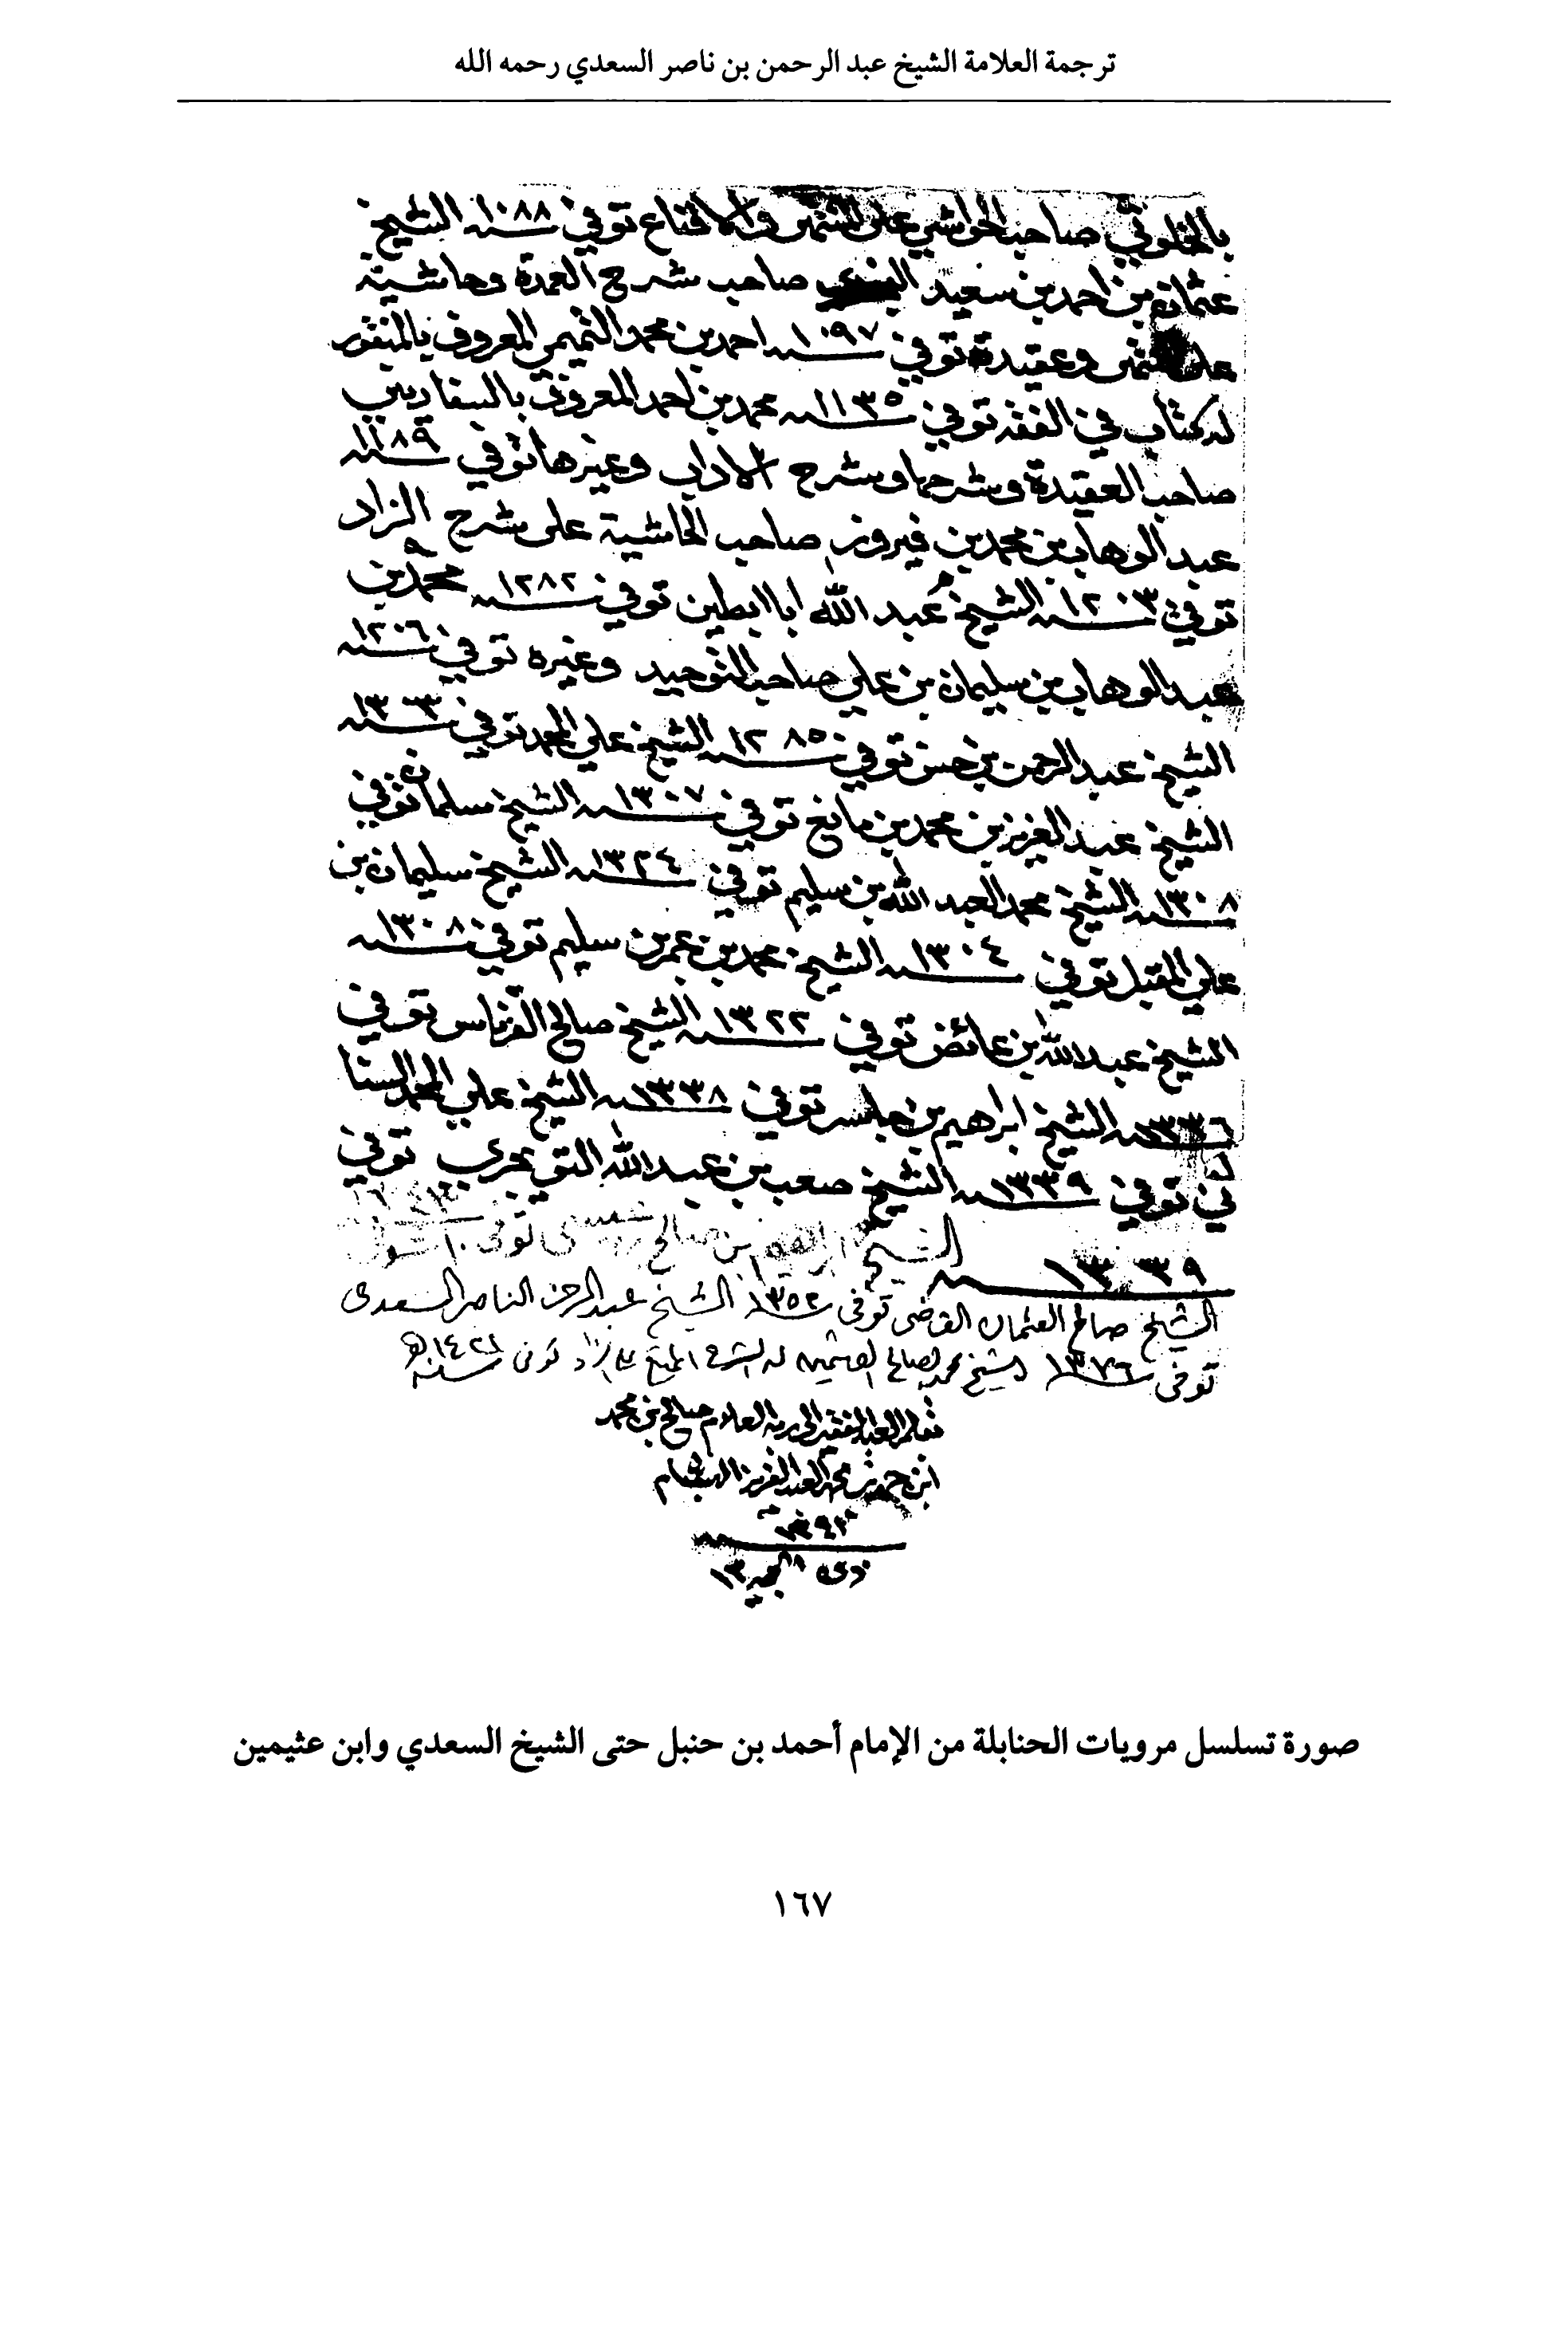 ترجمة العلامة الشيخ عبد الرحمن بن ناصر السعدي رحمه الله
بالخلوتي صاحب الحواشي على المنتهى والاقناع توفي ١٠٨٨ الشيخ
عثمان بن احمد بن سعيد النجدي صاحب شرح العمدة وحاشية
على المنتهى وعقيدة توفي ١٠٩٧ احمد بن محمد التميمي المعروف بالمنقور
له كتاب في الفقه توفي ١١٣٥ محمد بن احمد المعروف بالسفاريني
صاحب العقيدة وشرحها وشرح الاداب وغيرها توفي ١١٨٩
عبد الوهاب بن محمد بن فيروز صاحب الحاشية على شرح الزاد
توفي ١٢٠٣ الشيخ عبد الله ابا ابطين توفي ١٢٨٢ محمد بن
عبد الوهاب بن سليمان بن علي صاحب التوحيد وغيره توفي ١٢٠٦
الشيخ عبد الرحمن بن حسن توفي ١٢٨٥ الشيخ علي المحمد توفي ١٣٠٣
الشيخ عبد العزيز بن محمد بن مانع توفي ١٣٠٧ الشيخ سلمان توفي
١٣٠٨ الشيخ محمد العبد الله بن سليم توفي ١٣٢٤ الشيخ سليمان بن
علي المقبل توفي ١٣٠٤ الشيخ محمد بن عمر بن سليم توفي ١٣٠٨
الشيخ عبد الله بن عائض توفي ١٣٢٢ الشيخ صالح القرناس توفي
١٣٣٦ الشيخ ابراهيم بن جاسر توفي ١٣٣٨ الشيخ علي المحمد السنا
ني توفي ١٣٣٩ الشيخ صعب بن عبد الله التويجري توفي
١٣٣٩ الشيخ بن صالح توفى ١٠ شوال
الشيخ صالح العثمان القاضي توفى ١٣٥٢ الشيخ عبد الرحمن الناصر السعدي
توفى ١٣٧٦ الشيخ محمد الصالح العثيمين له الشرح الممتع على الزاد توفى سنة ١٤٢١هـ
العبد الفقير الى ربه العلام صالح بن محمد
ابن حمد بن محمد العبد العزيز البسام
١٣٩٢
١٣
صورة تسلسل مرويات الحنابلة من الإمام أحمد بن حنبل حتى الشيخ السعدي وابن عثيمين
١٦٧